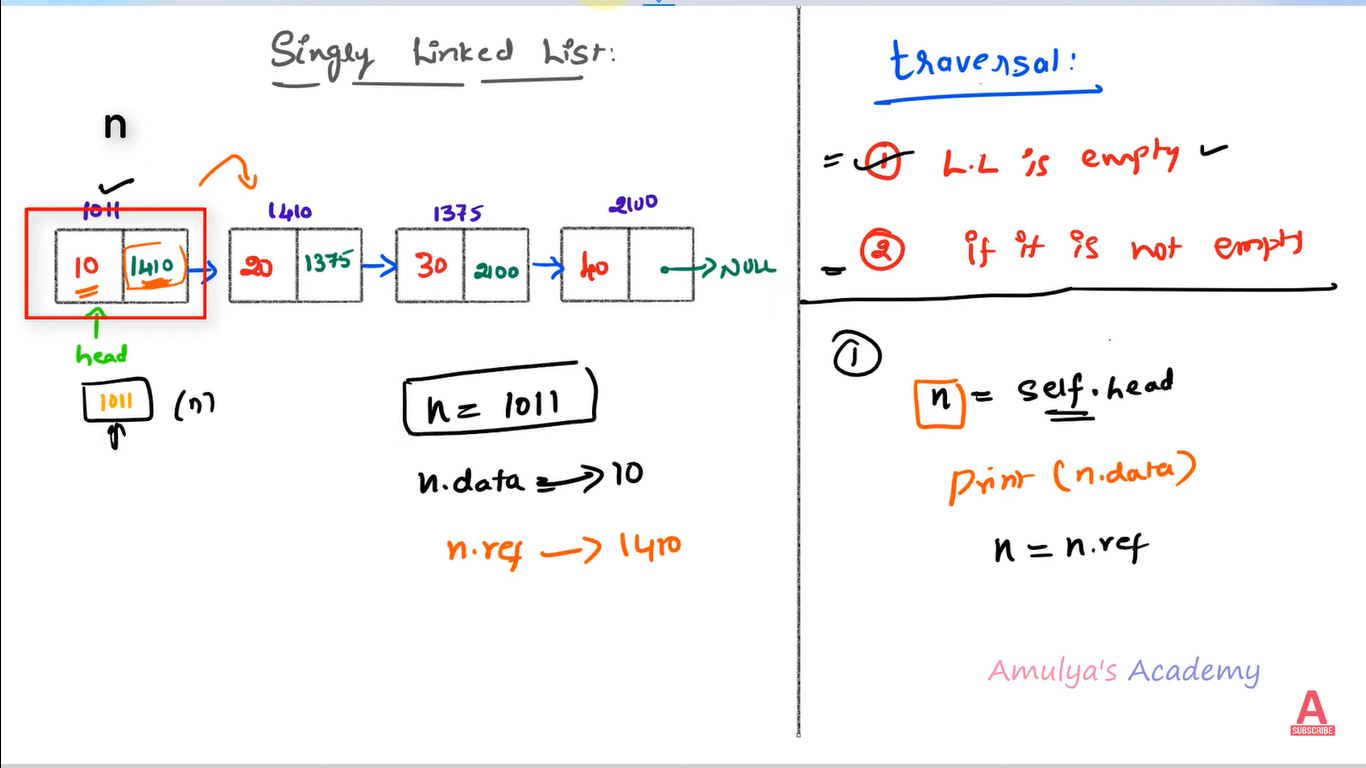 Singly Linked List:
n
1011
1410
1375
2100
10 1410
20 1375
30 2100
40
NULL
head
1011 (n)
n = 1011
n.data → 10
n.ref → 1410
traversal:
= ① L.L is empty ✓
- ② if it is not empty
①
n = self.head
print (n.data)
n = n.ref
Amulya's Academy
A
SUBSCRIBE